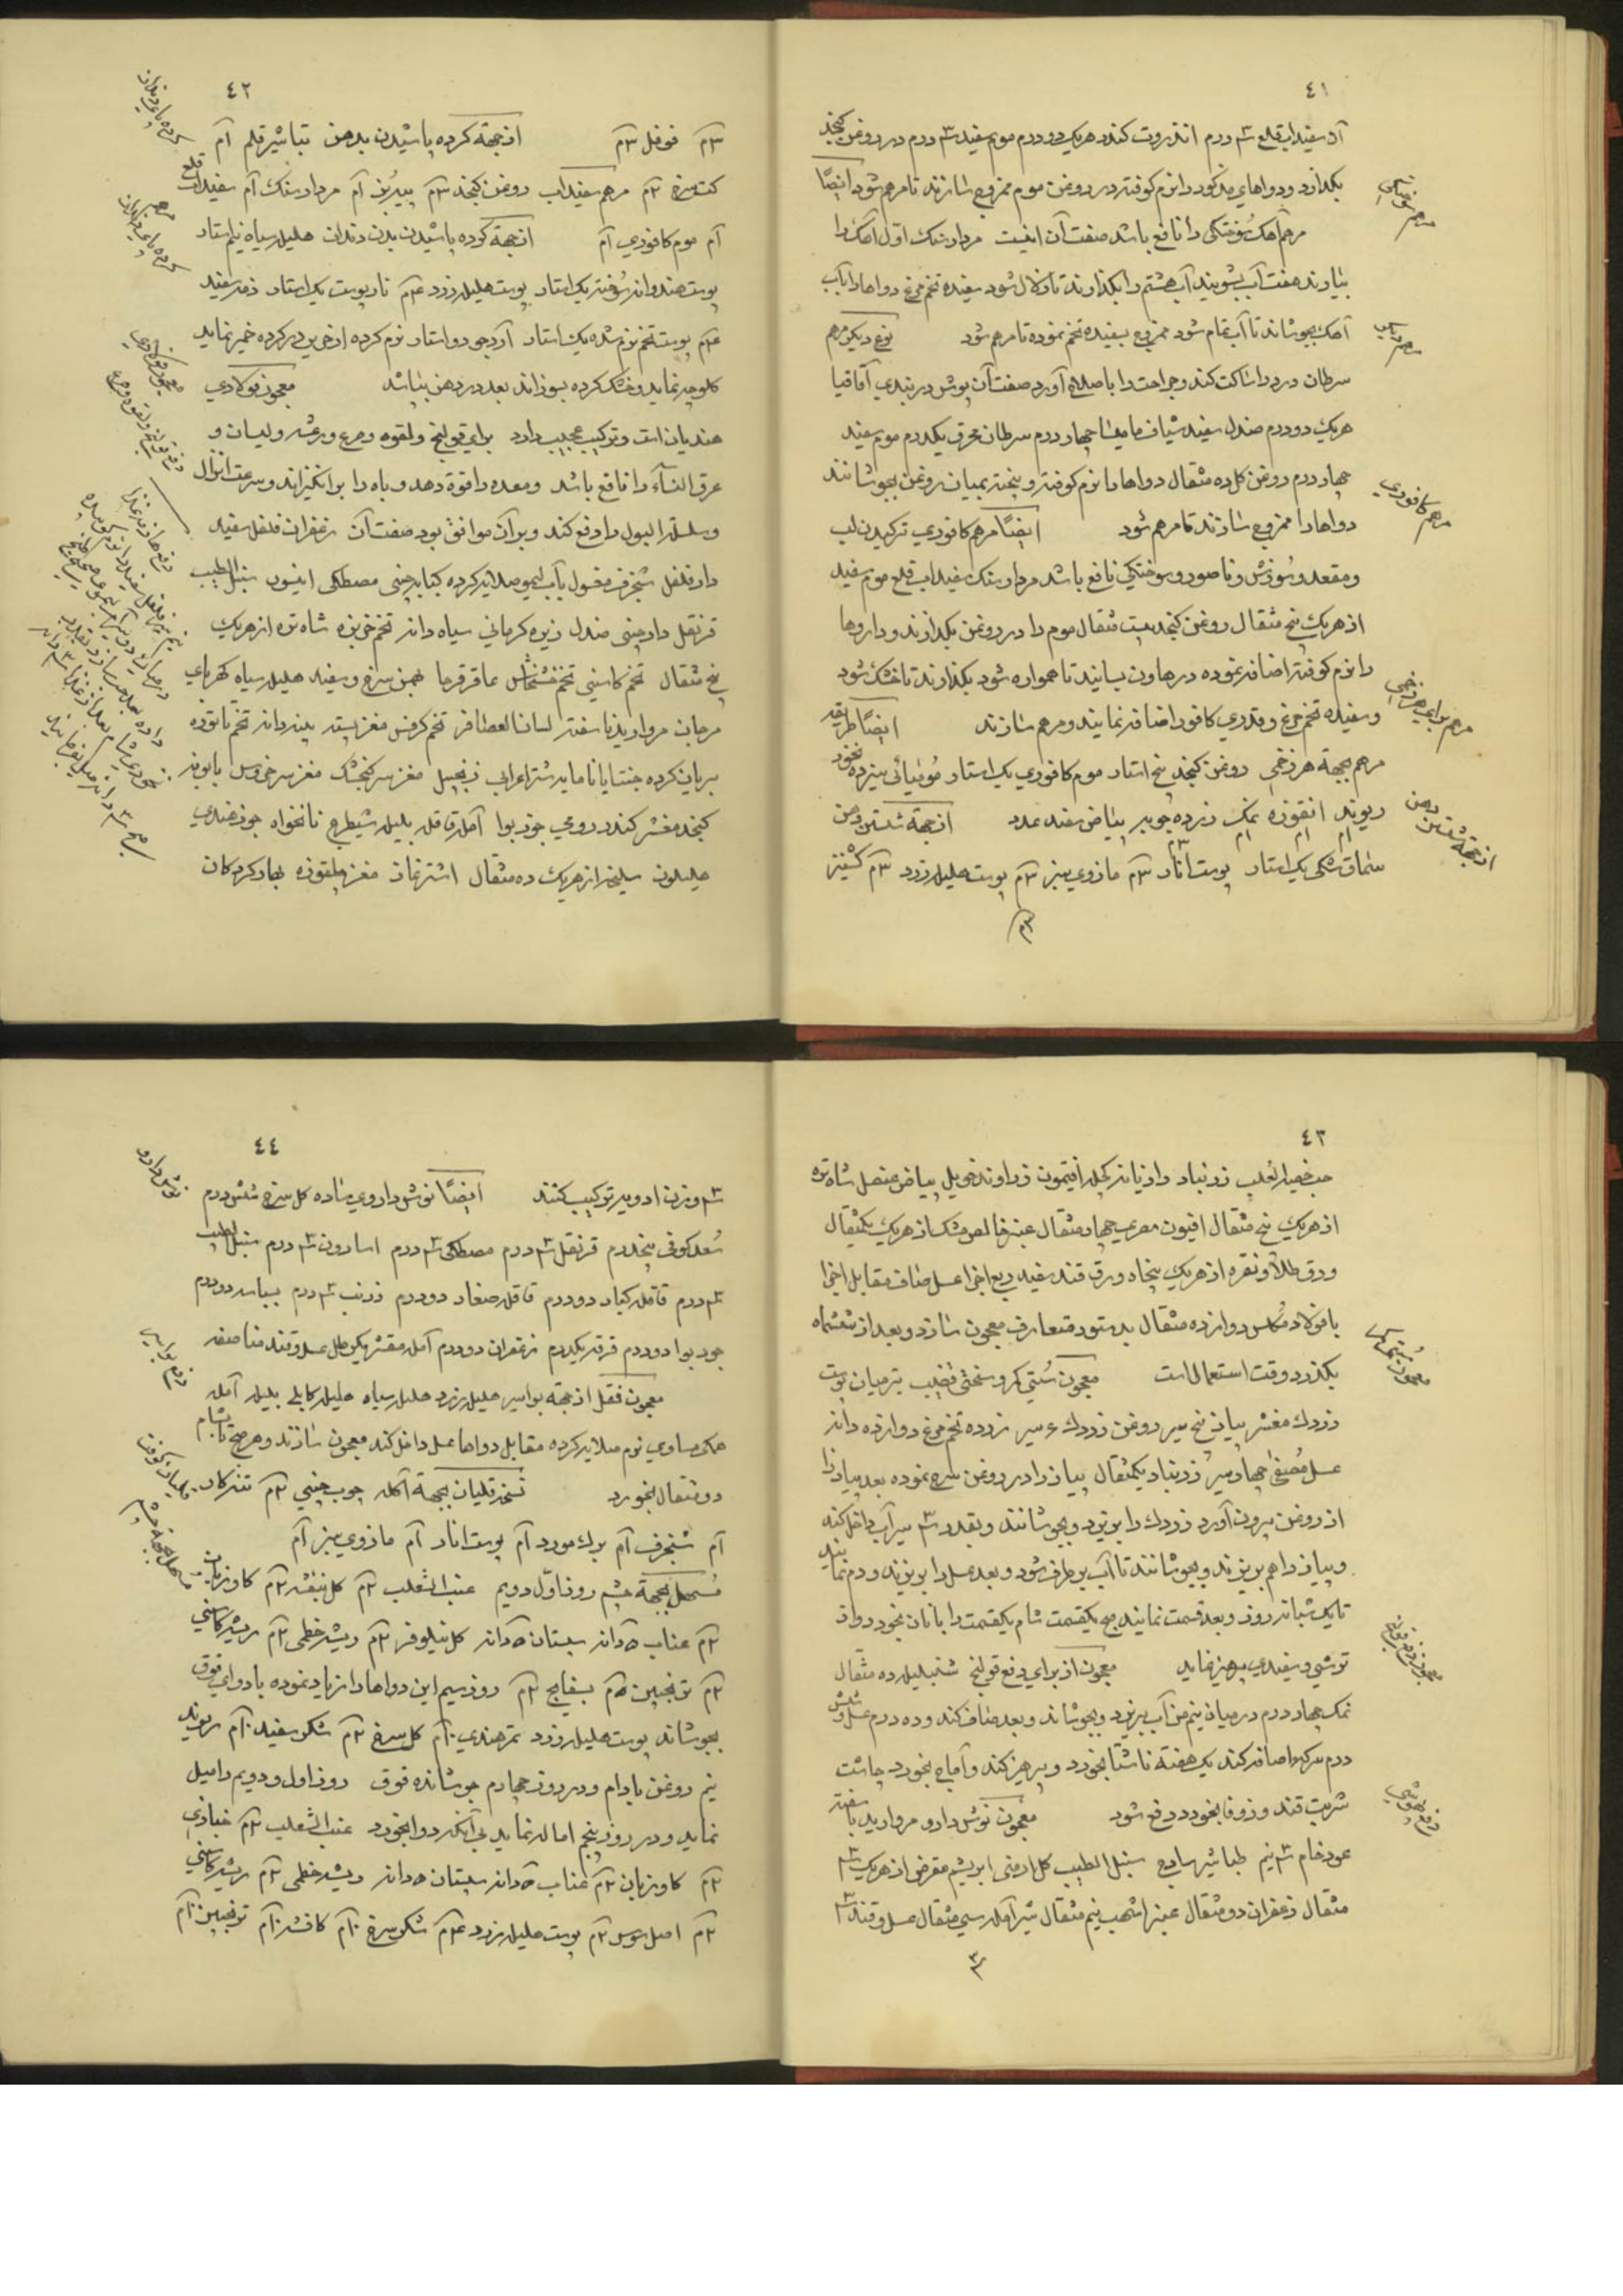 ٤١
آن سفیداب قلع ٣ درم انذروت کندر هریک دو درم موم سفید ٣ درم در روغن کنجد
بکدازد و دواهای مذکور را نرم کوفته در روغن موم ممزوج سازند تا مرهم شود ایضًا
مرهم آهک سُوختکی را نافع باشد صفت آن اینست مرداد سنک اوّل آهک را
بیاورند هفت آب بشویند آب هشتم را بکذارند تا زلال شود سفیده تخم مرغ دواها را باب
آهک بجوشاند تا آب تمام شود ممزوج بسفیده تخم نموده تا مرهم شود نوع دیکر مرهم
سرطان درد را ساکت کند و جراحت را باصلاح آورد صفت آن پوش دربندی آقاقیا
هریک دو درم صندل سفید شیاف مامیشا چهار درم سرطان محرق یکدرم موم سفید
چهار درم روغن کل ده مثقال دواها را نرم کوفته و بیخته بمیان روغن بجوشانند
دواها را ممزوج سازند تا مرهم شود ایضًا مرهم کافوری ترکیدن لب
و مقعد و سُوزش و ناصور و سوختکی نافع باشد مرداد سنک سفیداب قلع موم سفید
از هریک پنج مثقال روغن کنجد بیست مثقال موم را در روغن بکدازند و داروها
را نرم کوفته اضافه نموده در هاون بسایند تا هموار شود بکذارند تا خنک شود
و سفیده تخم مرغ و قدری کافور اضافه نمایند و مرهم سازند ایضًا طریقه
مرهم بجهة هر زخمی روغن کنجد پنج استاد موم کافوری یک استاد مُومیائی سیزده نخود
ریوند انقوزه نمک زرده چوبه بیاض هفت عدد از جهة شستن دهن
سماق مشکی یک استاد پوست انار ٣م مازوی سبز ٣م پوست هلیله زرد ٣م کشنیز
مرهم کافوری
مرهم برای هر زخمی
از جهة شستن دهن
٤٢
٣م فوفل ٣م از جهة کرده پاشیدن بدهن تباشیر قلم ١م
کت سرخ ٢م مرهم سفیداب روغن کنجد ٣م پیه بُز ١م مرداد سنک ١م سفیداب قلع
١م موم کافوری ١م از جهة کرده پاشیدن بدن دندان هلیله سیاه نیم استاد
پوست هندوانه سُوخته یک استاد پوست هلیله زرد ٤م نار پوست یک استاد زفت سفید
٤م پوست تخم نرم شده یک استاد آرد جو دو استاد نرم کرده از خربن در کرده خمیر نماید
کلوچه نماید و خشک کرده بسوزاند بعد در دهن بپاشد معجون فولادی
هندیان است و ترکیب عجیب دارد برای قولنج و لقوه و صرع و رعشه و لیسان و
عرق النساء را نافع باشد و معده را قوة دهد و باه را برانکیزاند و سرعت انزال
و سلسلة البول را دفع کند و بر آن موافق بود صفت آن زعفران فلفل سفید
دار فلفل شنجرف مغسول باب لیمو صلایه کرده کبابه چینی مصطکی انیسون سنبل الطیب
قرنفل دارچینی صندل زیره کرمانی سیاه دانه تخم خربزه شاه تره از هریک
پنج مثقال تخم کاسنی تخم خشخاش عاقرقرحا بهمن سرخ و سفید هلیله سیاه کهربای
مرجان مروارید ناسفته لسان العصافر تخم کرفس مغز پسته پنبه دانه تخم تاتوره
بریان کرده جنتیانا مایه شتر اعرابی زنجبیل مغز سر کنجشک مغز سر خروس بابونه
کنجد مقشر کندر رومی جوز بوا آمله قاقله بلیله شیطرج نانخواه جوز هندی
هلیلون سلیخه از هریک ده مثقال اشترنماز مغز چلغوزه بهار کردکان
معجون فولادی
دفع قولنج و لقوه و صرع
٤٣
حب خصیة الثعلب زرنباد رازیانه کچله افتیمون زراوند طویل بیاض عنصل شاه تره
از هریک پنج مثقال افیون مصری چهار مثقال عنبر خالص مشک از هریک یکمثقال
ورق طلا و نقره از هریک پنجاه ورق قند سفید ربع اجزا عسل صاف مقابل اجزا
با فولاد مُکلس دوازده مثقال بدستور متعارف معجون سازد و بعد از ششماه
بکذرد وقت استعمال است معجون سُستی کمر و سختی قضیب بتر میان پوست
زردک مقشر پیاز پنج سیر روغن زردک ٤ سیر زرده تخم مرغ دوازده دانه
عسل مُصفی چهار سیر زرنباد یکمثقال پیاز را در روغن سرخ نموده بعد پیاز را
از روغن بیرون آورد زردک را بریزد و بجوشانند و بقدر ٣ سیر آب داخل کند
و پیاز را هم بریزند و بجوشانند تا آب بر طرف شود و بعد عسل را بریزند و دم نمایند
تا یک شبانه روز و بعد قسمت نمایند صبح یکقسمت شام یکقسمت را با نان بخورد و از
ترشی و سفیدی پرهیز نماید معجون از برای دفع قولنج شنبلیله ده مثقال
نمک چهار درم در میان نیم من آب بریزد و بجوشاند و بعد صاف کند و ده درم عسل و شش
درم سرکه اضافه کند یک هفته ناشتا بخورد و پرهیز کند و آماج بخورد چاشت
شربت قند و زوفا بخورد دفع شود معجون نوش دارو مروارید ناسفته
عود خام ٣ نیم طباشیر ساذج سنبل الطیب کل ارمنی ابریشم مقرض از هریک ٣
مثقال زعفران دو مثقال عنبر اشهب نیم مثقال شیر آمله سی مثقال عسل و قند ٣
٤٤
٣ وزن ادویه ترکیب کنند ایضًا نوش داروی ساده کل سرخ شش درم
سُعد کوفی پنجدرم قرنفل ٣ درم مصطکی ٣ درم اسارون ٣ درم سنبل الطیب
٣ درم قاقله کبار دو درم قاقله صغار دو درم زرنب ٣ درم بسباسه دو درم
جوز بوا دو درم قرفه یکدرم زعفران دو درم آمله مقشر یکرطل عسل و قند مناصفه
معجون مُقل از جهة بواسیر هلیله زرد هلیله سیاه هلیله کابلی بلیله آمله
همکی مساوی نرم صلایه کرده مقابل دواها عسل داخل کند معجون سازند و هر صبح تا شام
دو مثقال بخورد نسخه قلیان بجهة آکله چوب چینی ٢م تنه کار
١م شنجرف ١م برک مورد ١م پوست انار ١م مازوی سبز ١م
مُسهل بجهة چشم روز اوّل دویم عنب الثعلب ٢م کل بنفشه ٢م کاوزبان
٢م عناب ٥ دانه سپستان ٥ دانه کل نیلوفر ٢م ریشه خطمی ٢م ریشه کاسنی
٢م ترنجبین ٥م بسفایج ٢م روز سیم این دواها را زیاد نموده با دوای فوق
بجوشاند پوست هلیله زرد تمر هندی ١٠م کل سرخ ٢م شکر سفید ١٠م ریوند
نیم روغن بادام و در روز چهارم جوشانده فوق روز اول و دویم را میل
نماید و در روز پنجم اماله نماید بی آنکه دوا بخورد عنب الثعلب ٢م خبازی
٢م کاوزبان ٢م عناب ٥ دانه سپستان ٥ دانه ریشه خطمی ٢م ریشه کاسنی
٢م اصل سوس ٢م پوست هلیله زرد ٤م شکر سرخ ١٠م کافشه ١٠م ترنجبین ١٠م
نوش دارو
مسهل بجهة چشم